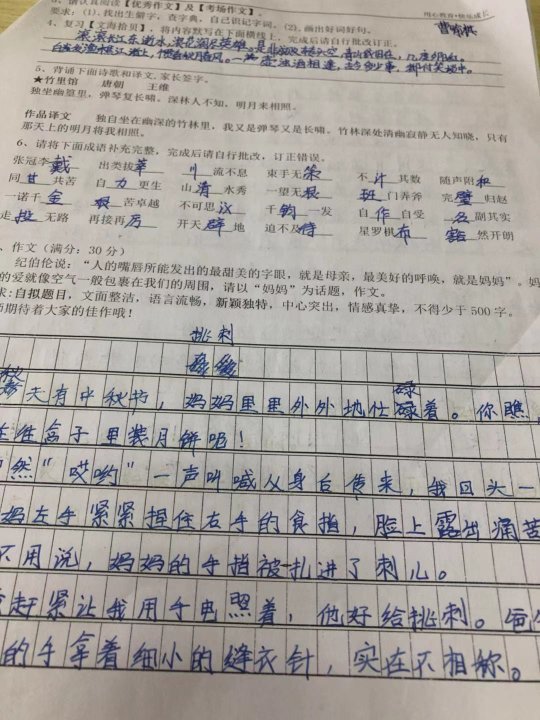 用心教育·快乐成长
3、请认真阅读【优秀作文】及【考场作文】。
要求:(1). 找出生僻字,查字典,自己识记字词。(2). 画出好词好句。
4、复习【文海拾贝】,将内容默写在下面横线上,完成后请自行批改订正。
滚滚长江东逝水,浪花淘尽英雄。是非成败转头空,青山依旧在,几度夕阳红。
白发渔樵江渚上,惯看秋月春风。一壶浊酒相逢,古今多少事,都付笑谈中。
5、背诵下面诗歌和译文,家长签字。
★竹里馆 唐朝 王维
独坐幽篁里,弹琴复长啸。深林人不知,明月来相照。
作品译文 独自坐在幽深的竹林里,我又是弹琴又是长啸。竹林深处清幽寂静无人知晓,只有
那天上的明月将我相照。
6、请将下面成语补充完整,完成后请自行批改,订正错误。
张冠李戴 出类拔萃 川流不息 束手无策 不计其数 随声附和
同甘共苦 自力更生 山清水秀 一望无垠 班门弄斧 完璧归赵
一诺千金 艰苦卓越 不可思议 千钧一发 自作自受 名副其实
走投无路 再接再厉 开天辟地 迫不及待 星罗棋布 豁然开朗
、作文(满分:30 分)
纪伯伦说:“人的嘴唇所能发出的最甜美的字眼,就是母亲,最美好的呼唤,就是妈妈”。妈
的爱就像空气一般包裹在我们的周围,请以“妈妈”为话题,作文。
求:自拟题目,文面整洁,语言流畅,新颖独特,中心突出,情感真挚,不得少于 500 字。
师期待着大家的佳作哦!
挑刺
天有中秋节,妈妈里里外外地忙碌着。你瞧,
在往盒子里装月饼呢!
然“哎哟”一声叫喊从身后传来,我回头一
妈左手紧紧捏住右手的食指,脸上露出痛苦
不用说,妈妈的手指被扎进了刺儿。
赶紧让我用手电照着,他好给挑刺。爸
的手拿着细小的缝衣针,实在不相称。